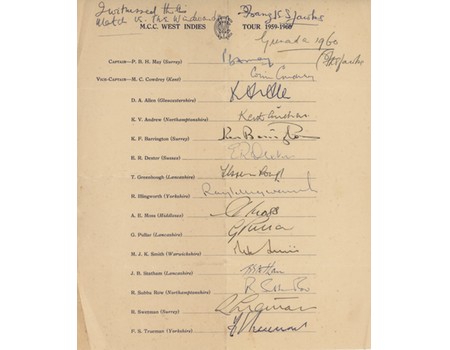 I witnessed this
match vs. The Windwards
M.C.C. WEST INDIES TOUR 1959-1960
Grenada 1960
CAPTAIN—P. B. H. MAY (Surrey)
VICE-CAPTAIN—M. C. COWDREY (Kent) Colin Cowdrey
D. A. ALLEN (Gloucestershire)
K. V. ANDREW (Northamptonshire) Keith Andrew
K. F. BARRINGTON (Surrey) Ken Barrington
E. R. DEXTER (Sussex) E R Dexter
T. GREENHOUGH (Lancashire)
R. ILLINGWORTH (Yorkshire) Ray Illingworth
A. E. MOSS (Middlesex) A Moss
G. PULLAR (Lancashire) G Pullar
M. J. K. SMITH (Warwickshire)
J. B. STATHAM (Lancashire)
R. SUBBA ROW (Northamptonshire) R Subba Row
R. SWETMAN (Surrey) R Swetman
F. S. TRUEMAN (Yorkshire) F Trueman